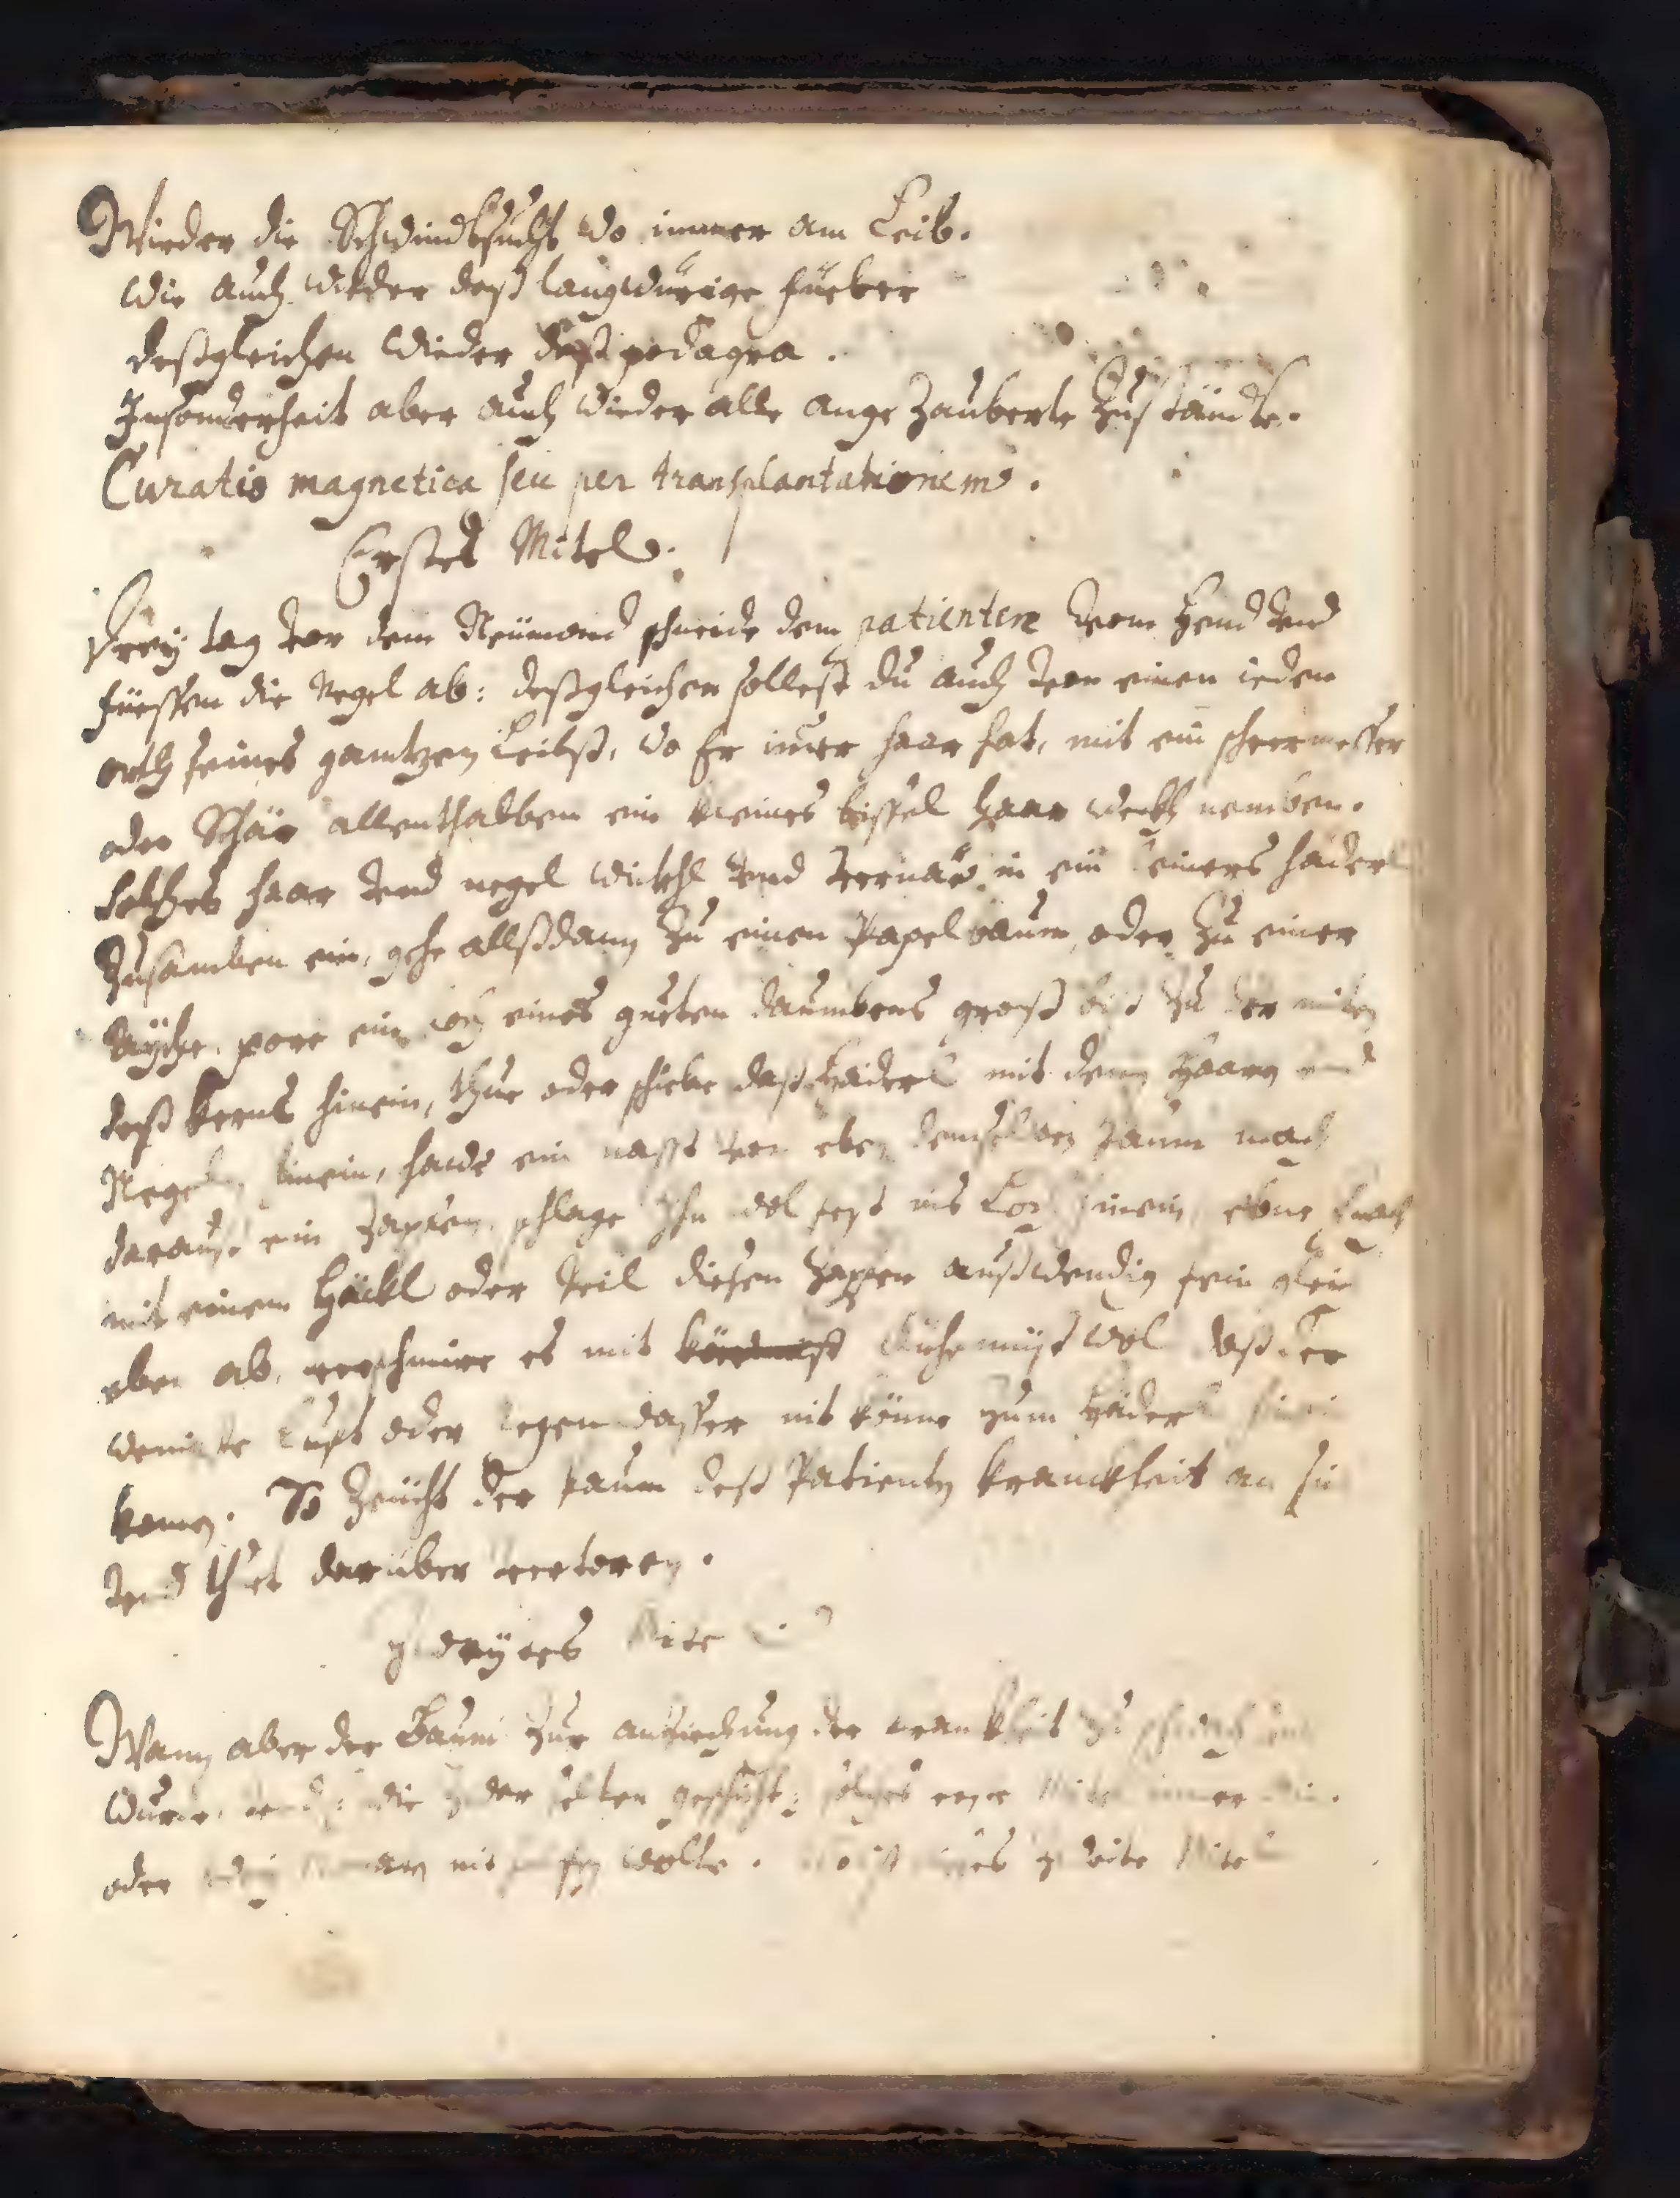 Wieder die Schwindtsucht wo immer am Leib.
wie auch wieder deß langwürige füeber
deßgleichen wieder deß podagra.
Insonderheit aber auch wieder alle ange Zauberte Zuständte.
Curatio magnetica seu per transplantationem.
Erstes Mitel.
Drey tag vor dem Neümond schneide dem patienten von Hend vnd
füessen die Negel ab: deßgleichen sollest du auch von einen ieden
orth seines gantzen Leibß, wo Er imer haar hat, mit ein scheermesser
oder Schär allenthalben ein kleines bissel Haar wekh nemben.
solches haar vnd negel wickhl vnd vernäe in ein haderl
Zusamben ein, gehe allßdann Zu einen Papelbaum, oder Zu einer
Aÿche. pore ein loch eines gueten daumbens groß biß Zu der miten
deß kerns hinein, thue oder schiebe daß Haderl mit denn Haarn vnd
Negeln hinein, haue ein nasst von eben demselben paum mach
darauß ein Zapfen, schlage Ihn wol fest ins Loch hinein,
mit einem Häckl oder peil diesen Zapfen außwendig fein gleich
eben ab, verschmire es mit khüemüst wol daß der
wenigste Lufft oder Regen wasser nit könne zum Haderl hinein
komen. So Zeücht der paum deß Patienten kranckheit an sich
vnd thet darüber verdoren.
Zweÿtes Mitel
Wann aber der Baum Zur anziechung der krankheit Zu schwach
wurde, die
oder nit wolte. ist zweite Mitel